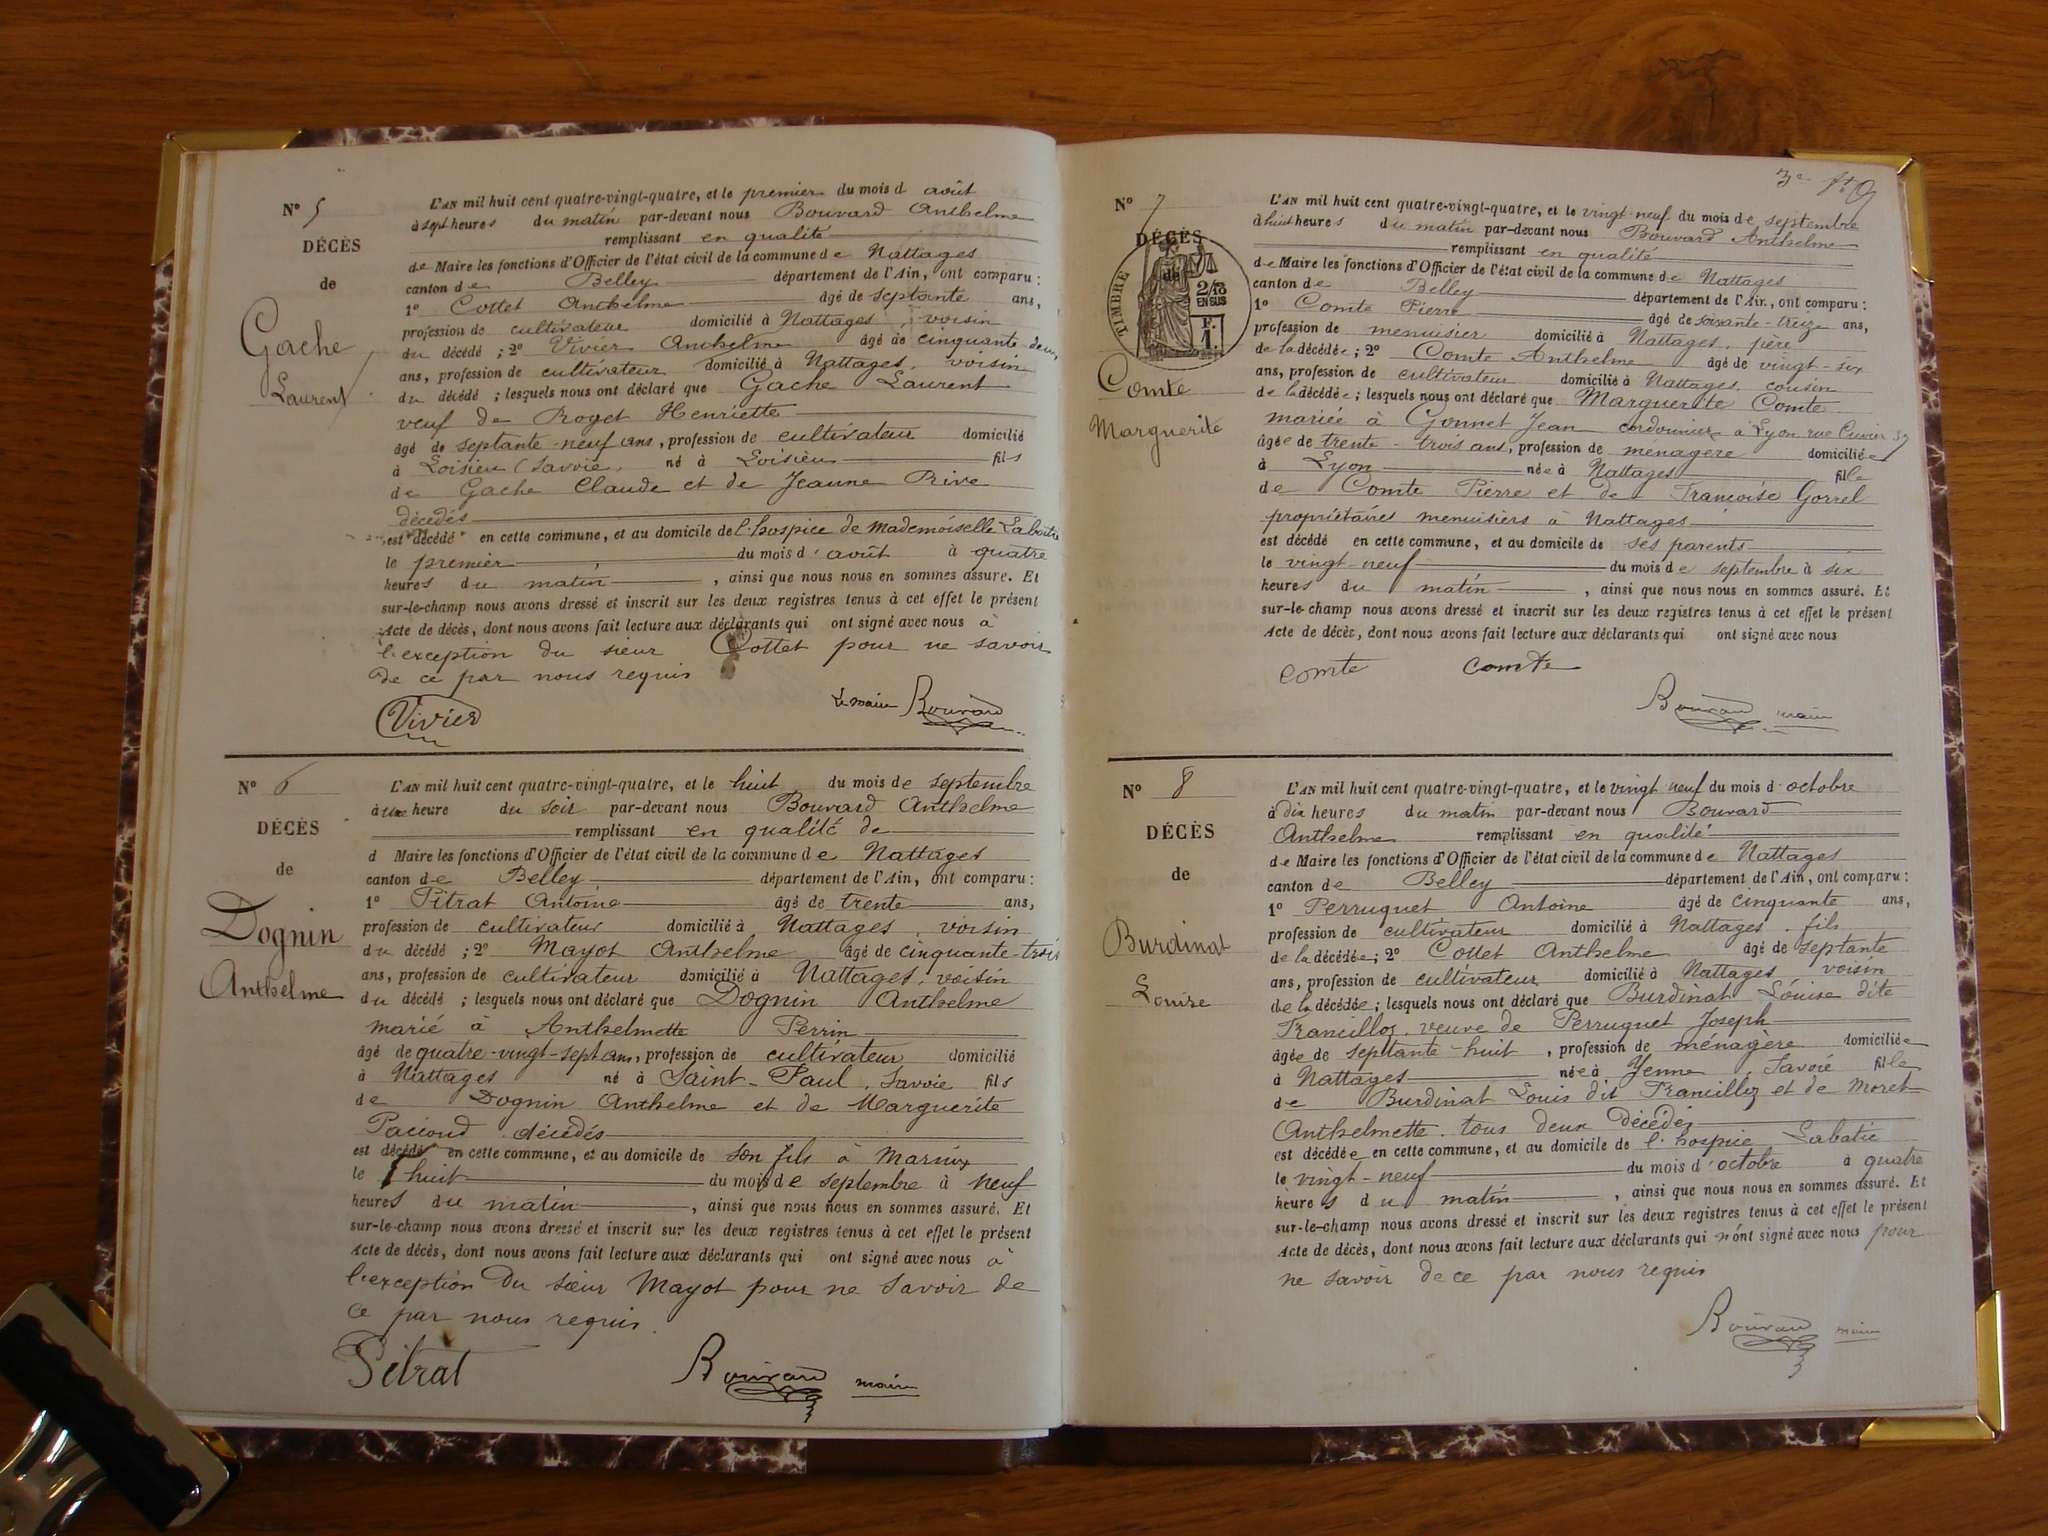 Nº 5
DÉCÈS
de
Gache
Laurent
L'AN mil huit cent quatre-vingt-quatre, et le premier du mois d août
à sept heures du matin par-devant nous Bouvard Anthelme
remplissant en qualité
de Maire les fonctions d'Officier de l'état civil de la commune de Nattages
canton de Belley département de l'Ain, ont comparu :
1º Cottet Anthelme âgé de septante ans,
profession de cultivateur domicilié à Nattages, voisin
du décédé ; 2º Vivier Anthelme âgé de cinquante-deux
ans, profession de cultivateur domicilié à Nattages, voisin
du décédé ; lesquels nous ont déclaré que Gache Laurent
veuf de Roget Henriette
âgé de septante-neuf ans, profession de cultivateur domicilié
à Loisieu (Savoie, né à Loisieu fils
de Gache Claude et de Jeanne Prive
décédés
est décédé en cette commune, et au domicile de l'hospice de Mademoiselle
le premier du mois d'août à quatre
heures du matin , ainsi que nous nous en sommes assuré. Et
sur-le-champ nous avons dressé et inscrit sur les deux registres tenus à cet effet le présent
Acte de décès, dont nous avons fait lecture aux déclarants qui ont signé avec nous à
l'exception du sieur Cottet pour ne savoir
de ce par nous requis
Vivier Le maire Bouvard
Nº 6
DÉCÈS
de
Dognin
Anthelme
L'AN mil huit cent quatre-vingt-quatre, et le huit du mois de septembre
à une heure du soir par-devant nous Bouvard Anthelme
remplissant en qualité de
d Maire les fonctions d'Officier de l'état civil de la commune de Nattages
canton de Belley département de l'Ain, ont comparu :
1º Pitrat Antoine âgé de trente ans,
profession de cultivateur domicilié à Nattages, voisin
du décédé ; 2º Mayot Anthelme âgé de cinquante-trois
ans, profession de cultivateur domicilié à Nattages, voisin
du décédé ; lesquels nous ont déclaré que Dognin Anthelme
marié à Anthelmette Perrin
âgé de quatre-vingt-sept ans, profession de cultivateur domicilié
à Nattages né à Saint-Paul, Savoie fils
de Dognin Anthelme et de Marguerite
décédés
est décédé en cette commune, et au domicile de son fils à
le huit du mois de septembre à neuf
heures du matin , ainsi que nous nous en sommes assuré. Et
sur-le-champ nous avons dressé et inscrit sur les deux registres tenus à cet effet le présent
Acte de décès, dont nous avons fait lecture aux déclarants qui ont signé avec nous à
l'exception du sieur Mayot pour ne savoir de
ce par nous requis.
Pitrat Bouvard maire
Nº 7
DÉCÈS
de
TIMBRE
2/10
EN SUS
F.
1.
Comte
Marguerite
L'AN mil huit cent quatre-vingt-quatre, et le vingt-neuf du mois de septembre
à huit heures du matin par-devant nous Bouvard Anthelme
remplissant en qualité
de Maire les fonctions d'Officier de l'état civil de la commune de Nattages
canton de Belley département de l'Ain, ont comparu :
1º Comte Pierre âgé de soixante-treize ans,
profession de menuisier domicilié à Nattages, père
de la décédée ; 2º Comte Anthelme âgé de vingt-six
ans, profession de cultivateur domicilié à Nattages, cousin
de la décédée ; lesquels nous ont déclaré que Marguerite Comte
mariée à Gonnet Jean cordonnier à Lyon rue Cuvier 37
âgée de trente-trois ans, profession de ménagère domiciliée
à Lyon née à Nattages fille
de Comte Pierre et de Françoise Gorrel
propriétaires menuisiers à Nattages
est décédé en cette commune, et au domicile de ses parents
le vingt-neuf du mois de septembre à six
heures du matin , ainsi que nous nous en sommes assuré. Et
sur-le-champ nous avons dressé et inscrit sur les deux registres tenus à cet effet le présent
Acte de décès, dont nous avons fait lecture aux déclarants qui ont signé avec nous
Comte Comte
Bouvard maire
Nº 8
DÉCÈS
de
Burdinat
Louise
L'AN mil huit cent quatre-vingt-quatre, et le vingt neuf du mois d'octobre
à dix heures du matin par-devant nous Bouvard
Anthelme remplissant en qualité
de Maire les fonctions d'Officier de l'état civil de la commune de Nattages
canton de Belley département de l'Ain, ont comparu :
1º Perruquet Antoine âgé de cinquante ans,
profession de cultivateur domicilié à Nattages, fils
de la décédée ; 2º Cottet Anthelme âgé de septante
ans, profession de cultivateur domicilié à Nattages voisin
de la décédée ; lesquels nous ont déclaré que Burdinat Louise dite
Francilloz, veuve de Perruquet Joseph
âgée de septante-huit , profession de ménagère domiciliée
à Nattages née à Yenne, Savoie fille
de Burdinat Louis dit Francilloz et de Moret
Anthelmette, tous deux décédés
est décédée en cette commune, et au domicile de l'hospice Labatie
le vingt-neuf du mois d'octobre à quatre
heures du matin , ainsi que nous nous en sommes assuré. Et
sur-le-champ nous avons dressé et inscrit sur les deux registres tenus à cet effet le présent
Acte de décès, dont nous avons fait lecture aux déclarants qui n'ont signé avec nous pour
ne savoir de ce par nous requis
Bouvard maire